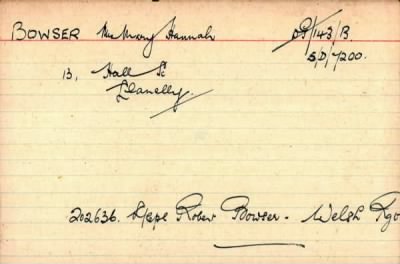 BOWSER Mrs Mary Hannah
O9/143/B.
S/D/7200.
13, Hall St
Llanelly.
202636. L/Cpl Robert Bowser - Welsh Rgt